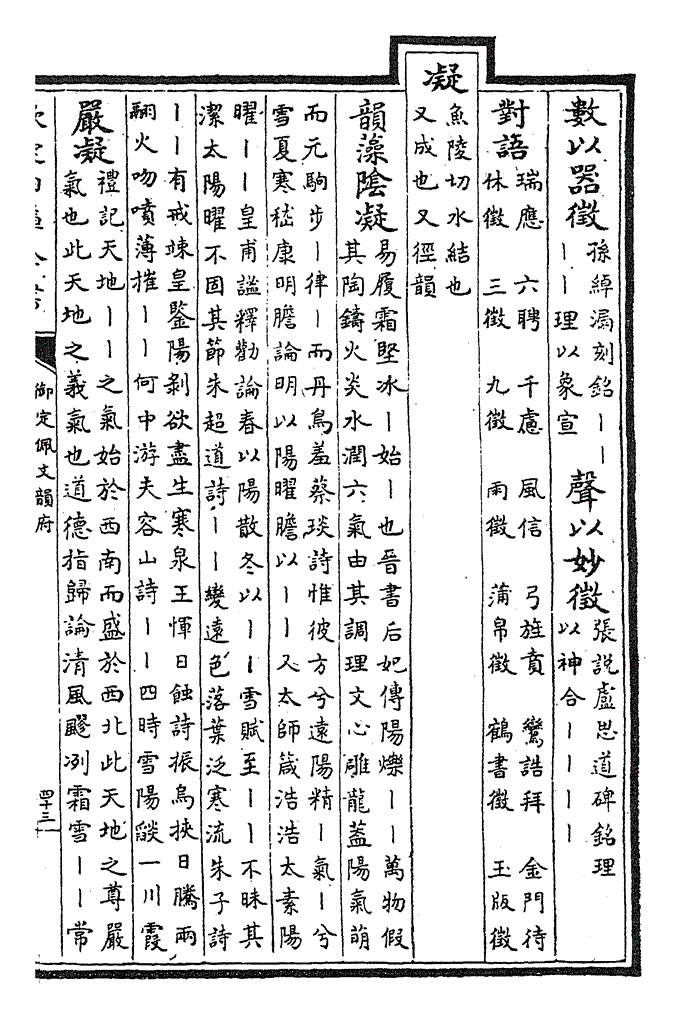 數以器徵 孫綽漏刻銘丨丨
丨丨理以象宣 聲以妙徵 張説盧思道碑銘理
以神合丨丨丨丨
對語 瑞應 六聘 千慮 風信 弓旌賁 鸞誥拜 金門待
休徵 三徵 九徵 雨徵 蒲帛徵 鶴書徵 玉版徵
凝 魚陵切水結也
又成也又徑韻
韻藻陰凝 易履霜堅冰丨始丨也晉書后妃傳陽爍丨丨萬物假
其陶鑄火炎水潤六氣由其調理文心雕龍蓋陽氣萌
而元駒步丨律丨而丹鳥羞蔡琰詩惟彼方兮遠陽精丨氣丨兮
雪夏寒嵇康明膽論明以陽曜膽以丨丨又太師箴浩浩太素陽
曜丨丨皇甫謐釋勸論春以陽散冬以丨丨雪賦至丨丨不昧其
潔太陽曜不固其節朱超道詩丨丨變遠色落葉泛寒流朱子詩
丨丨有戒竦皇鑒陽剝欲盡生寒泉王惲日蝕詩振烏挾日騰兩
翮火吻噴薄摧丨丨何中游夫容山詩丨丨四時雪陽燄一川霞
嚴凝 禮記天地丨丨之氣始於西南而盛於西北此天地之尊嚴
氣也此天地之義氣也道德指歸論清風飂冽霜雪丨丨常
御定佩文韻府
四十三